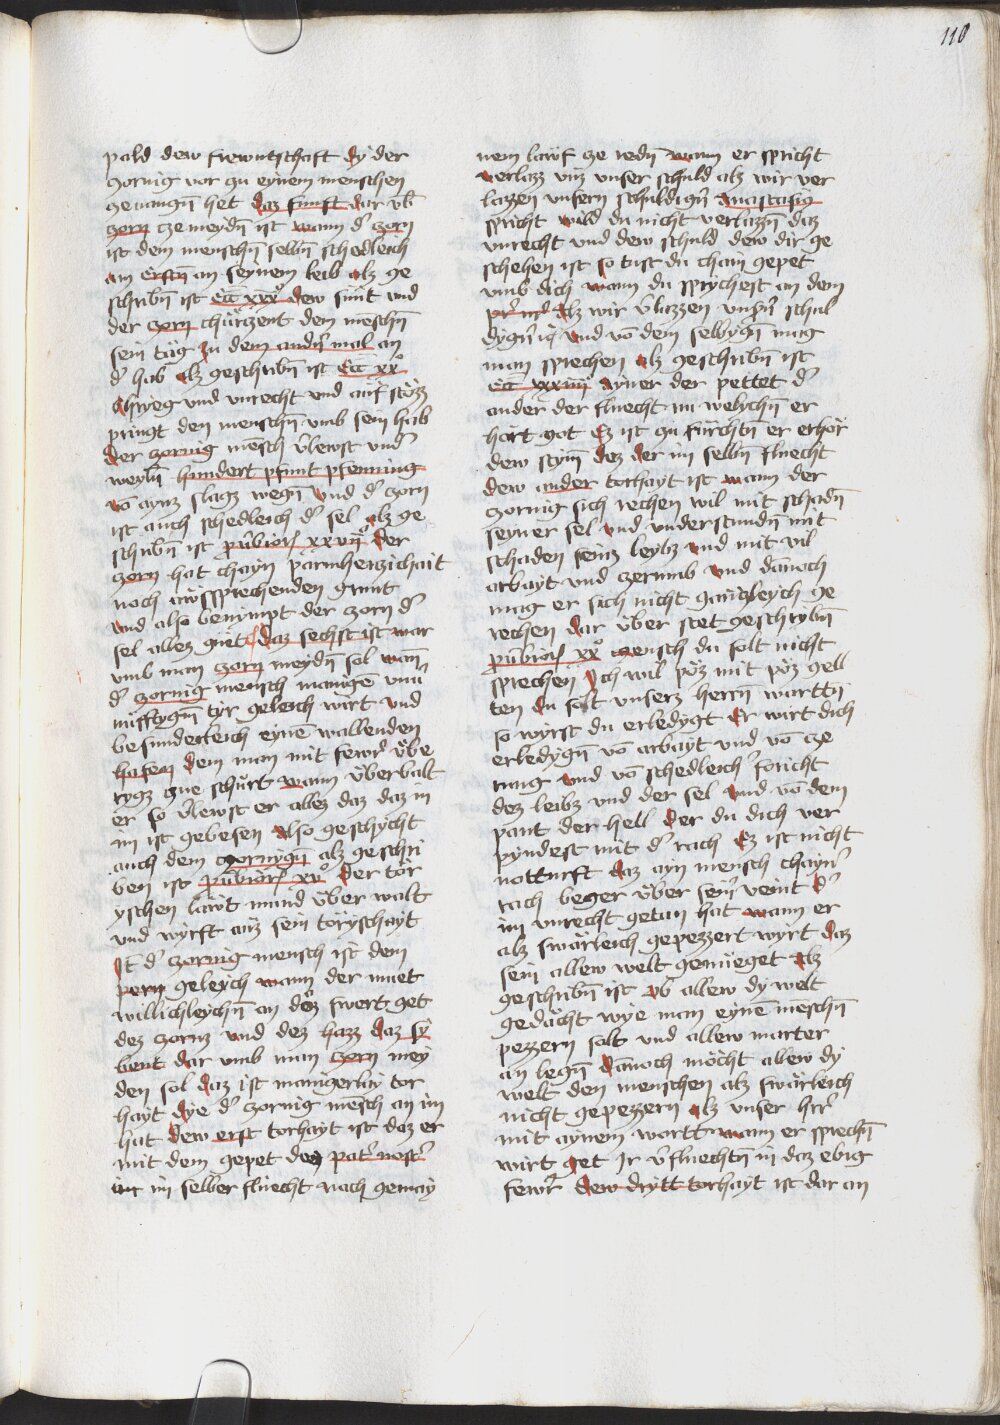 110
pald dew frewntschaft dy der
zornig vor zu eynem menschen
gewangn̄ het daz funft dar vb̄
zorn ze meydn̄ ist wann d' zorn
ist dem menschn̄ selbn̄ schedleich
am erstn̄ an seynem leib alz ge
schribn̄ ist Ecc̄ xxx° dew sint und
der zorn chürtzent dem menschn̄
sein täg Zu dem andn̄ mal an
d' hab Alz geschribn̄ ist Ecc̄ xx°
Chrieg und unrecht und auf stözz
pringt den menschn̄ umb sein hab
der zornig mensch v̄lewst und'
weyln̄ hundert pfunt pfenning
vō aynz slagz wegn̄ Und d' zorn
ist auch schedleich d' sel alz ge
schribn̄ ist p̄u̇bior xxvii° Der
zorn hat chayn parmherzichait
noch awssprechenden grimt
Und also benimpt der zorn d'
sel allez guet Daz sechst ist war
umb man zorn meydn̄ sol wan̄
d' zornig mensch manige unū
nüfftygn̄ tyr geleich wirt und
besunderleich eynē wallenden
hafen dem man mit fewr' übe
rygz zue schürt wann überbalt
er so v̄lewst er allez daz daz in
im ist gebesen Also geschycht
auch dem zornygn̄ alz geschri
ben ist p̄u̇bior xv° Der tör
yschen läwt mund über walt
und wyrft auz sein töryschayt
It̄ d' zornig mensch ist dem
pern geleych wann der muet
willichleychn̄ an döz swert get
dez zornz und dez hazz daz sy
bent dar umb man zorn mey
den sol daz ist manigerlay tor
hayt dye d' zornig mensch an im
hat Dew erst torhayt ist daz er
mit dem gepet dez pat' nost'
im selber fluecht nach gemay
nem läwf ze redn̄ wann er spricht
Verlazz unz unser schuld alz wir ver
lazzen unsern schuldign̄ Anastasig
spricht wild du nicht verlazzn̄ daz
unrecht und dew schuld dew dir ge
schehen ist so tust du chain gepet
umb dich wann du sprichest an dem
pr̄ nr̄ Alz wir v̄lazzen unsn̄ schul
dygn̄ Und vō dem selbygn̄ mag
man sprechen Alz geschribn̄ ist
Ecc̄ xxxiiii Ayner der pettet d'
ander der fluecht im welychn̄ er
hört got Ez ist zu fürchtn̄ er erhör
dew stym̄ dez der im selbn̄ fluecht
dew ander torhayt ist wann der
zornig sich rechen wil mit schadn̄
seyner sel Und understundn̄ mit
schaden seinz leybz und mit vil
arbayt und zerung Und dānoch
mag er sich nicht gänzleych ge
rechen Dar über stet geschrybn̄
p̄u̇bior xx° Mensch du solt nicht
sprechen Ich wil pöz mit pöz gell
ten du solt unserz herrn̄ warttn̄
so wyrst du erledygt Er wirt dich
erledygn̄ vō arbayt und vō ze
rung und vō schedleich' foricht
dez leibz und der sel Und vō dem
pant der hell Der du dich ver
pyndest mit d' rach Ez ist nicht
notturft daz ayn mensch chayn'
rach beger über sein̄ veint d'
im unrecht getan hat wann er
alz swärleich gepezzert wyrt daz
sein allew welt genüeget Alz
geschribn̄ ist Ob allew dy welt
gedächt wye man eynē menschn̄
pezzern solt und allew marter
an legn̄ Dānoch möcht allew dy
welt den menschen alz swärleich
nicht gepezzern Alz unser hr̄r
mit aynem wortt wann er sprechn̄
wirt Get Ir v̄fluechtn̄ in daz ebig
fewr̄ Dew dritt torhayt ist dar an